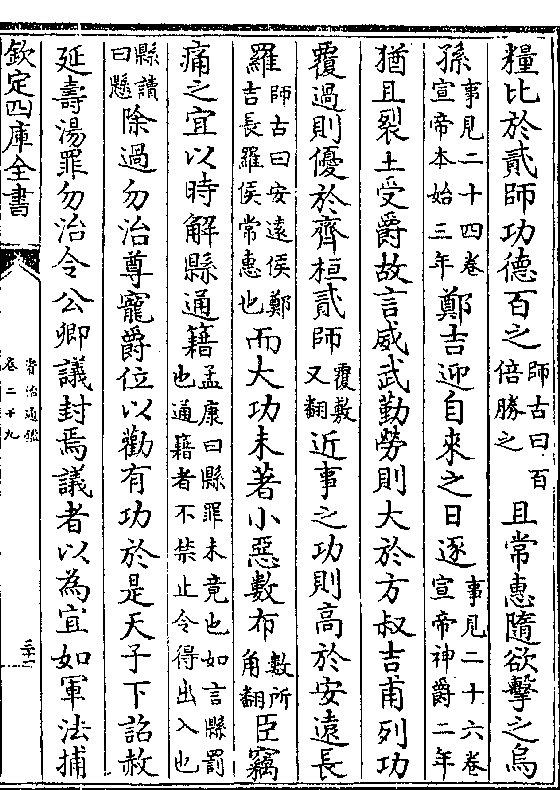 糧比於貳師功德百之師古曰百倍勝之且常惠隨欲擊之烏
孫事見二十四卷宣帝本始三年鄭吉迎自來之日逐事見二十六卷宣帝神爵二年
猶且裂土受爵故言威武勤勞則大於方叔吉甫列功
覆過則優於齊桓貳師覆敷又翻近事之功則高於安遠長
羅師古曰安遠侯鄭吉長羅侯常惠也而大功未著小惡數布數所角翻臣竊
痛之宜以時解縣通籍孟康曰縣罪未竟也如言縣罰也通籍者不禁止令得出入也
縣讀曰懸除過勿治尊寵爵位以勸有功於是天子下詔赦
延壽湯罪勿治令公卿議封焉議者以為宜如軍法捕
欽定四庫全書
資治通鑑
卷二十九
三十一